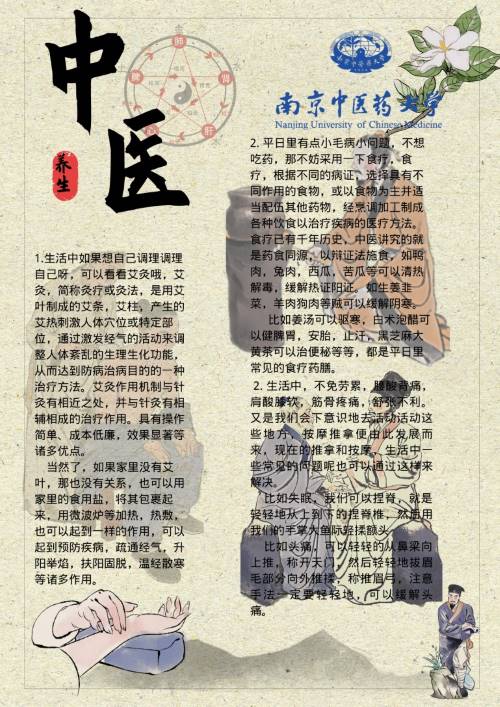 中医
养生
南京中医药大学
Nanjing University of Chinese Medicine
1.生活中如果想自己调理调理
自己呀，可以看看艾灸哦，艾
灸，简称灸疗或灸法，是用艾
叶制成的艾条，艾柱，产生的
艾热刺激人体穴位或特定部
位，通过激发经气的活动来调
整人体紊乱的生理生化功能，
从而达到防病治病目的的一种
治疗方法。艾灸作用机制与针
灸有相近之处，并与针灸有相
辅相成的治疗作用。具有操作
简单、成本低廉，效果显著等
诸多优点。
当然了，如果家里没有艾
叶，那也没有关系，也可以用
家里的食用盐，将其包裹起
来，用微波炉等加热，热敷，
也可以起到一样的作用，可以
起到预防疾病，疏通经气，升
阳举焰，扶阳固脱，温经散寒
等诸多作用。
2. 平日里有点小毛病小问题，不想
吃药，那不妨采用一下食疗，食
疗，根据不同的病证，选择具有不
同作用的食物，或以食物为主并适
当配伍其他药物，经烹调加工制成
各种饮食以治疗疾病的医疗方法。
食疗已有千年历史，中医讲究的就
是药食同源，以辩证法施食，如鸭
肉，兔肉，西瓜，苦瓜等可以清热
解毒，缓解热证阳证，如生姜韭
菜，羊肉狗肉等贼可以缓解阴寒。
比如姜汤可以驱寒，白术泡醋可
以健脾胃，安胎，止汗，黑芝麻大
黄茶可以治便秘等等，都是平日里
常见的食疗药膳。
2. 生活中，不免劳累，腰酸背痛，
肩酸膝软，筋骨疼痛，舒张不利。
又是我们会下意识地去活动活动这
些地方，按摩推拿便由此发展而
来，现在的推拿和按摩，生活中一
些常见的问题呢也可以通过这样来
解决。
比如失眠，我们可以捏脊，就是
轻轻地从上到下的捏脊椎，然后用
我们的手掌大鱼际轻揉额头
比如头痛，可以轻轻的从鼻梁向
上推，称开天门，然后轻轻地拔眉
毛部分向外推揉，称推眉弓，注意
手法一定要轻轻地，可以缓解头
痛。